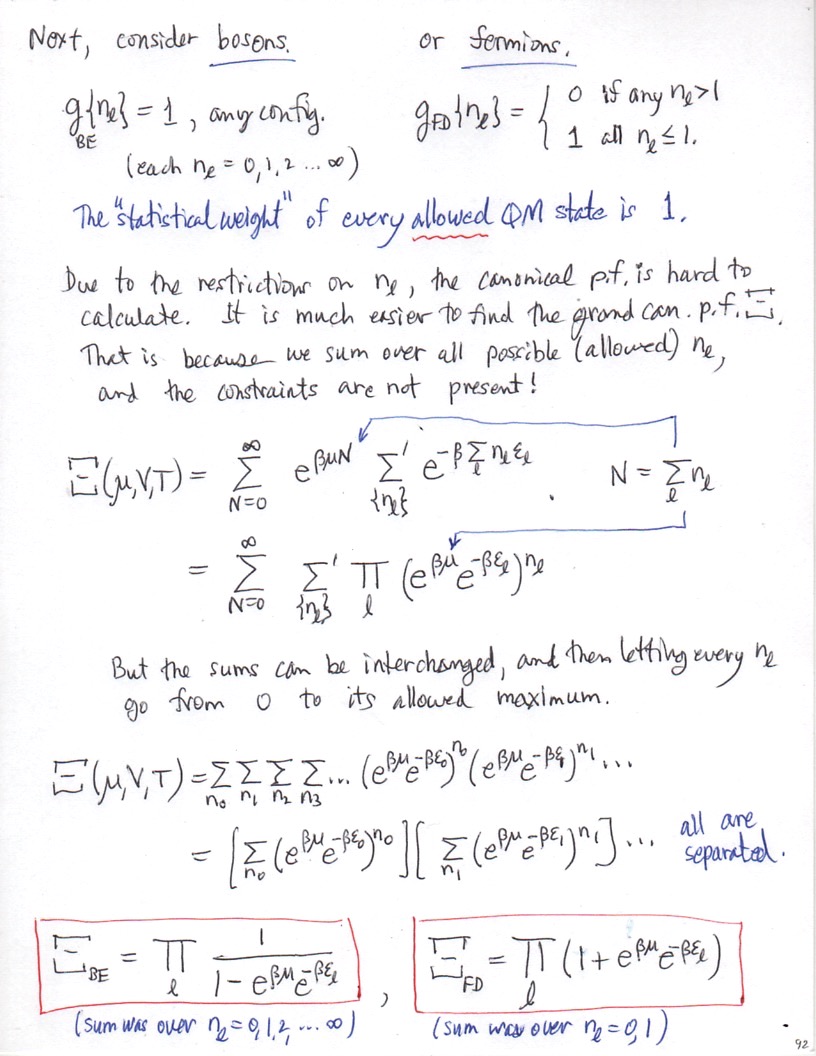 Next, consider bosons. or fermions.
g_BE{n_ℓ} = 1, any config. g_FD{n_ℓ} = { 0 if any n_ℓ>1
(each n_ℓ = 0,1,2 ... ∞) 1 all n_ℓ ≤ 1.
The "statistical weight" of every allowed QM state is 1.
Due to the restrictions on n_ℓ, the canonical p.f. is hard to
calculate. It is much easier to find the grand can. p.f. Ξ.
That is because we sum over all possible (allowed) n_ℓ,
and the constraints are not present!
Ξ(μ,V,T) = Σ_{N=0}^{∞} e^{βμN} Σ'_{{n_ℓ}} e^{-β Σ_ℓ n_ℓ ε_ℓ} . N = Σ_ℓ n_ℓ
= Σ_{N=0}^{∞} Σ'_{{n_ℓ}} Π_ℓ (e^{βμ} e^{-βε_ℓ})^{n_ℓ}
But the sums can be interchanged, and then letting every n_ℓ
go from 0 to its allowed maximum.
Ξ(μ,V,T) = Σ_{n_0} Σ_{n_1} Σ_{n_2} Σ_{n_3} ... (e^{βμ} e^{-βε_0})^{n_0} (e^{βμ} e^{-βε_1})^{n_1} ...
= [Σ_{n_0} (e^{βμ} e^{-βε_0})^{n_0}] [Σ_{n_1} (e^{βμ} e^{-βε_1})^{n_1}] ... all are
separated.
Ξ_BE = Π_ℓ 1/(1 - e^{βμ} e^{-βε_ℓ}) , Ξ_FD = Π_ℓ (1 + e^{βμ} e^{-βε_ℓ})
(sum was over n_ℓ = 0,1,2, ... ∞) (sum was over n_ℓ = 0,1)
92